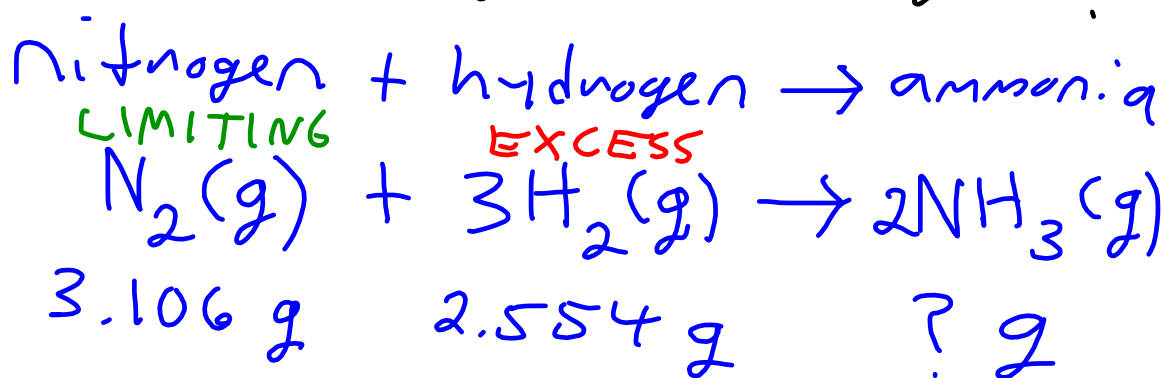 nitrogen + hydrogen → ammonia
LIMITING EXCESS
N₂(g) + 3H₂(g) → 2NH₃(g)
3.106 g 2.554 g ? g